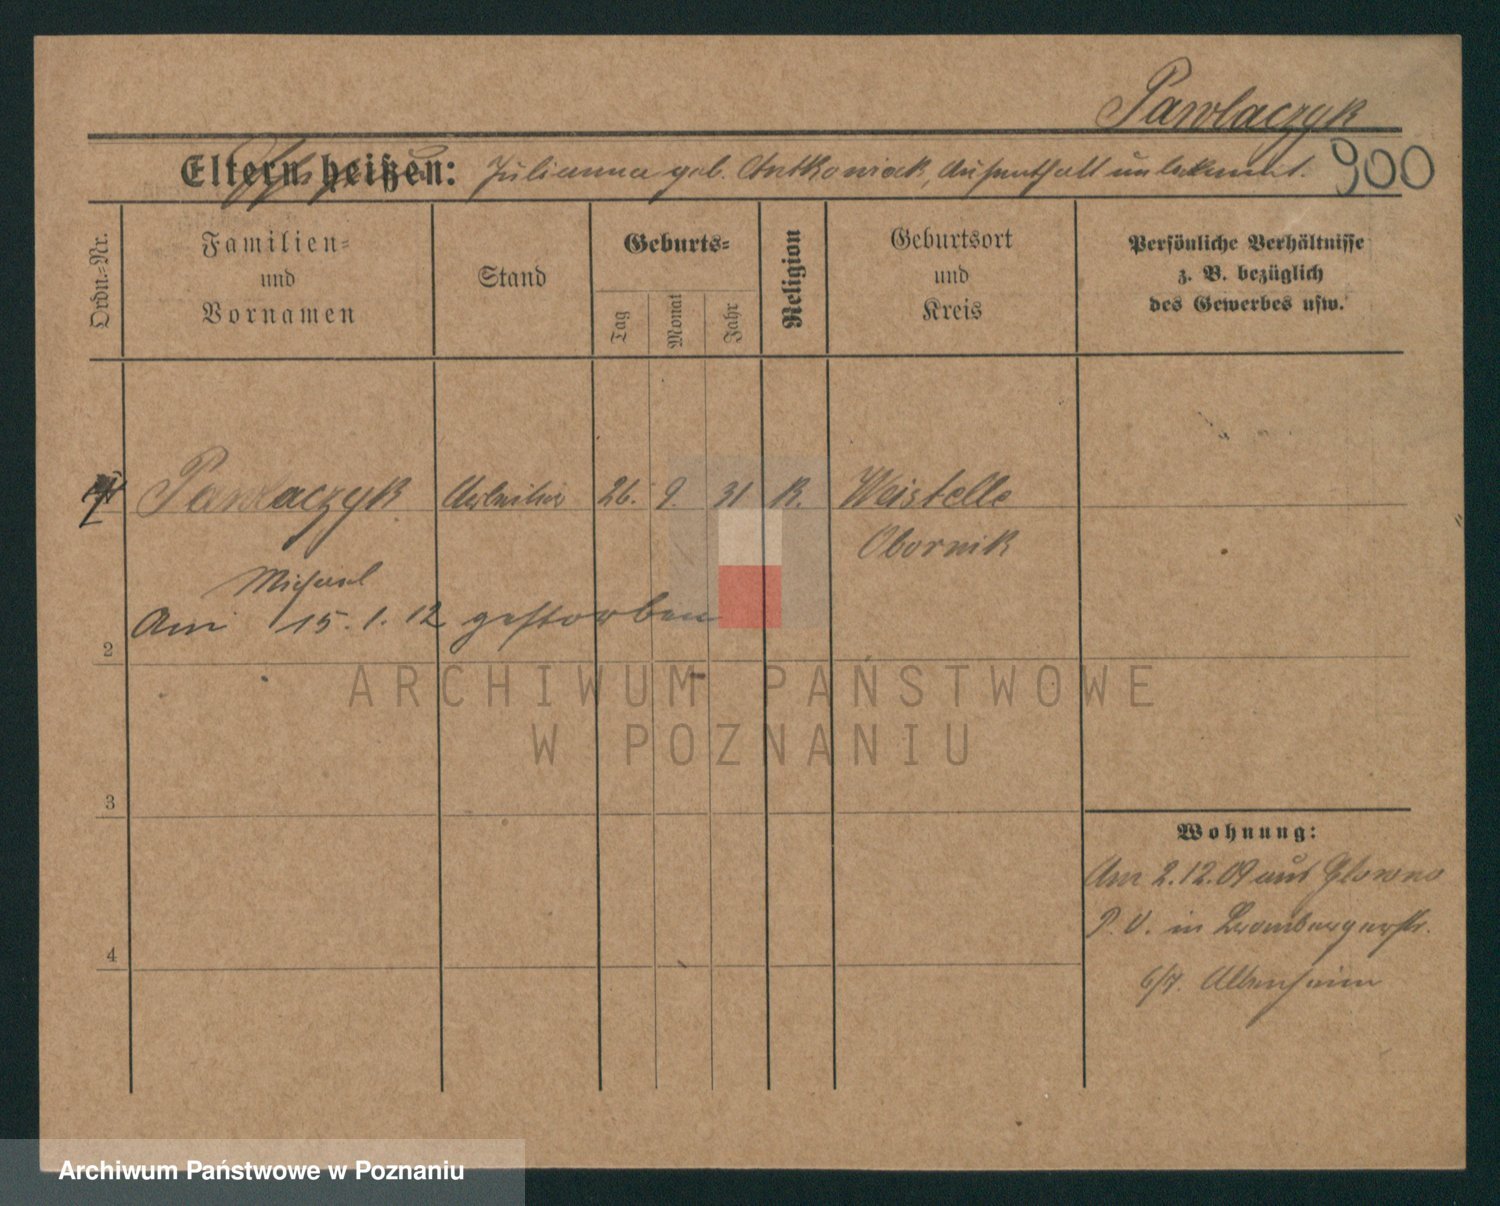 Pawlaczyk
Eltern heißen: Julianna geb. Antkowiak, Aufenthalt unbekannt. 900
Ordn.-Nr.
Familien-
und
Vornamen
Stand
Geburts-
Tag
Monat
Jahr
Religion
Geburtsort
und
Kreis
Persönliche Verhältnisse
z. B. bezüglich
des Gewerbes usw.
Pawlaczyk Arbeiter 26. 9. 31 K. Weistelle
Obornik
Michael
Am 15.1.12 gestorben
2
ARCHIWUM PAŃSTWOWE
W POZNANIU
3
Wohnung:
Am 2.12.09 aus Glowno
P.O. in Brombergerstr.
4
6/7. Altenheim
Archiwum Państwowe w Poznaniu